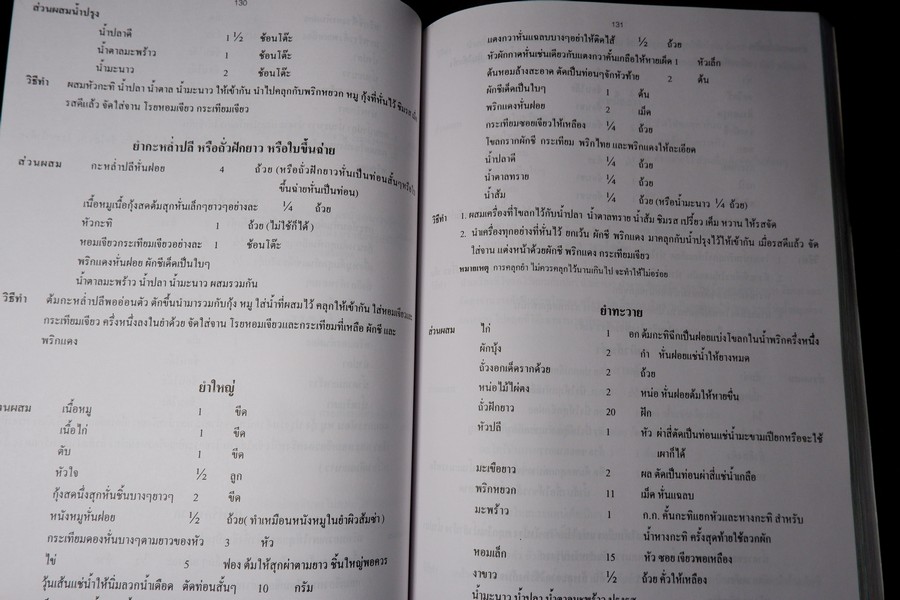 130
ส่วนผสมน้ำปรุง
น้ำปลาดี 1 ½ ช้อนโต๊ะ
น้ำตาลมะพร้าว 1 ช้อนโต๊ะ
น้ำมะนาว 2 ช้อนโต๊ะ
วิธีทำ ผสมหัวกะทิ น้ำปลา น้ำตาล น้ำมะนาว ให้เข้ากัน นำไปคลุกกับพริกหยวก หมู กุ้งที่หั่นไว้ ชิมรส
รสดีแล้ว จัดใส่จาน โรยหอมเจียว กระเทียมเจียว
ยำกะหล่ำปลี หรือถั่วฝักยาว หรือใบขึ้นฉ่าย
ส่วนผสม กะหล่ำปลีหั่นฝอย 4 ถ้วย (หรือถั่วฝักยาวหั่นเป็นท่อนสั้นๆหรือ
ขึ้นฉ่ายหั่นเป็นท่อน)
เนื้อหมูเนื้อกุ้งสดต้มสุกหั่นเล็กๆยาวๆอย่างละ ¼ ถ้วย
หัวกะทิ 1 ถ้วย (ไม่ใช้ก็ได้)
หอมเจียวกระเทียมเจียวอย่างละ 1 ช้อนโต๊ะ
พริกแดงหั่นฝอย ผักชีเด็ดเป็นใบๆ
น้ำตาลมะพร้าว น้ำปลา น้ำมะนาว ผสมรวมกัน
วิธีทำ ต้มกะหล่ำปลีพออ่อนตัว ตักขึ้นนำมารวมกับกุ้ง หมู ใส่น้ำที่ผสมไว้ คลุกให้เข้ากัน ใส่หอมเจียวและ
กระเทียมเจียว ครึ่งหนึ่งลงในยำด้วย จัดใส่จาน โรยหอมเจียวและกระเทียมที่เหลือ ผักชี และ
พริกแดง
ยำใหญ่
ส่วนผสม เนื้อหมู 1 ขีด
เนื้อไก่ 1 ขีด
ตับ 1 ขีด
หัวใจ ½ ลูก
กุ้งสดนึ่งสุกหั่นชิ้นบางๆยาวๆ 2 ขีด
หนังหมูหั่นฝอย ½ ถ้วย( ทำเหมือนหนังหมูในยำผิวส้มซ่า )
กระเทียมดองหั่นบางๆตามยาวของหัว 3 หัว
ไข่ 5 ฟอง ต้มให้สุกผ่าตามยาว ชิ้นใหญ่พอควร
วุ้นเส้นแช่น้ำให้นิ่มลวกน้ำเดือด ตัดท่อนสั้นๆ 10 กรัม
131
แตงกวาหั่นแฉลบบางๆอย่าให้ติดไส้ ½ ถ้วย
หัวผักกาดหั่นเช่นเดียวกับแตงกวาคั้นเกลือให้หายเผ็ด 1 หัวเล็ก
ต้นหอมล้างสะอาด ตัดเป็นท่อนๆจักหัวท้าย 2 ต้น
ผักชีเด็ดเป็นใบๆ 1 ต้น
พริกแดงหั่นฝอย 2 เม็ด
กระเทียมซอยเจียวให้เหลือง ¼ ถ้วย
โขลกรากผักชี กระเทียม พริกไทย และพริกแดงให้ละเอียด
น้ำปลาดี ¼ ถ้วย
น้ำตาลทราย ¼ ถ้วย
น้ำส้ม ¼ ถ้วย (หรือน้ำมะนาว ¼ ถ้วย)
วิธีทำ 1. ผสมเครื่องที่โขลกไว้กับน้ำปลา น้ำตาลทราย น้ำส้ม ชิมรส เปรี้ยว เค็ม หวาน ให้รสจัด
2. นำเครื่องทุกอย่างที่หั่นไว้ ยกเว้น ผักชี พริกแดง มาคลุกกับน้ำปรุงไว้ให้เข้ากัน เมื่อรสดีแล้ว จัด
ใส่จาน แต่งหน้าด้วยผักชี พริกแดง กระเทียมเจียว
หมายเหตุ การคลุกยำ ไม่ควรคลุกไว้นานเกินไป จะทำให้ไม่อร่อย
ยำทะวาย
ส่วนผสม ไก่ 1 อก ต้มกะทิฉีกเป็นฝอยแบ่งโขลกในน้ำพริกครึ่งหนึ่ง
ผักบุ้ง 2 กำ หั่นฝอยแช่น้ำให้ยางหมด
ถั่วงอกเด็ดรากด้วย 2 ถ้วย
หน่อไม้ไผ่ตง 2 หน่อ หั่นฝอยต้มให้หายขื่น
ถั่วฝักยาว 20 ฝัก
หัวปลี 1 หัว ผ่าสี่ตัดเป็นท่อนแช่น้ำมะขามเปียกหรือจะใช้
เผาก็ได้
มะเขือยาว 2 ผล ตัดเป็นท่อนผ่าสี่แช่น้ำเกลือ
พริกหยวก 11 เม็ด หั่นแฉลบ
มะพร้าว 1 ก.ก. คั้นกะทิแยกหัวและหางกะทิ สำหรับ
น้ำหางกะทิ ครั้งสุดท้ายใช้ลวกผัก
หอมเล็ก 15 หัว ซอย เจียวพอเหลือง
งาขาว ½ ถ้วย คั่วให้เหลือง
น้ำมะนาว น้ำปลา น้ำตาลมะพร้าว ปรุงรส